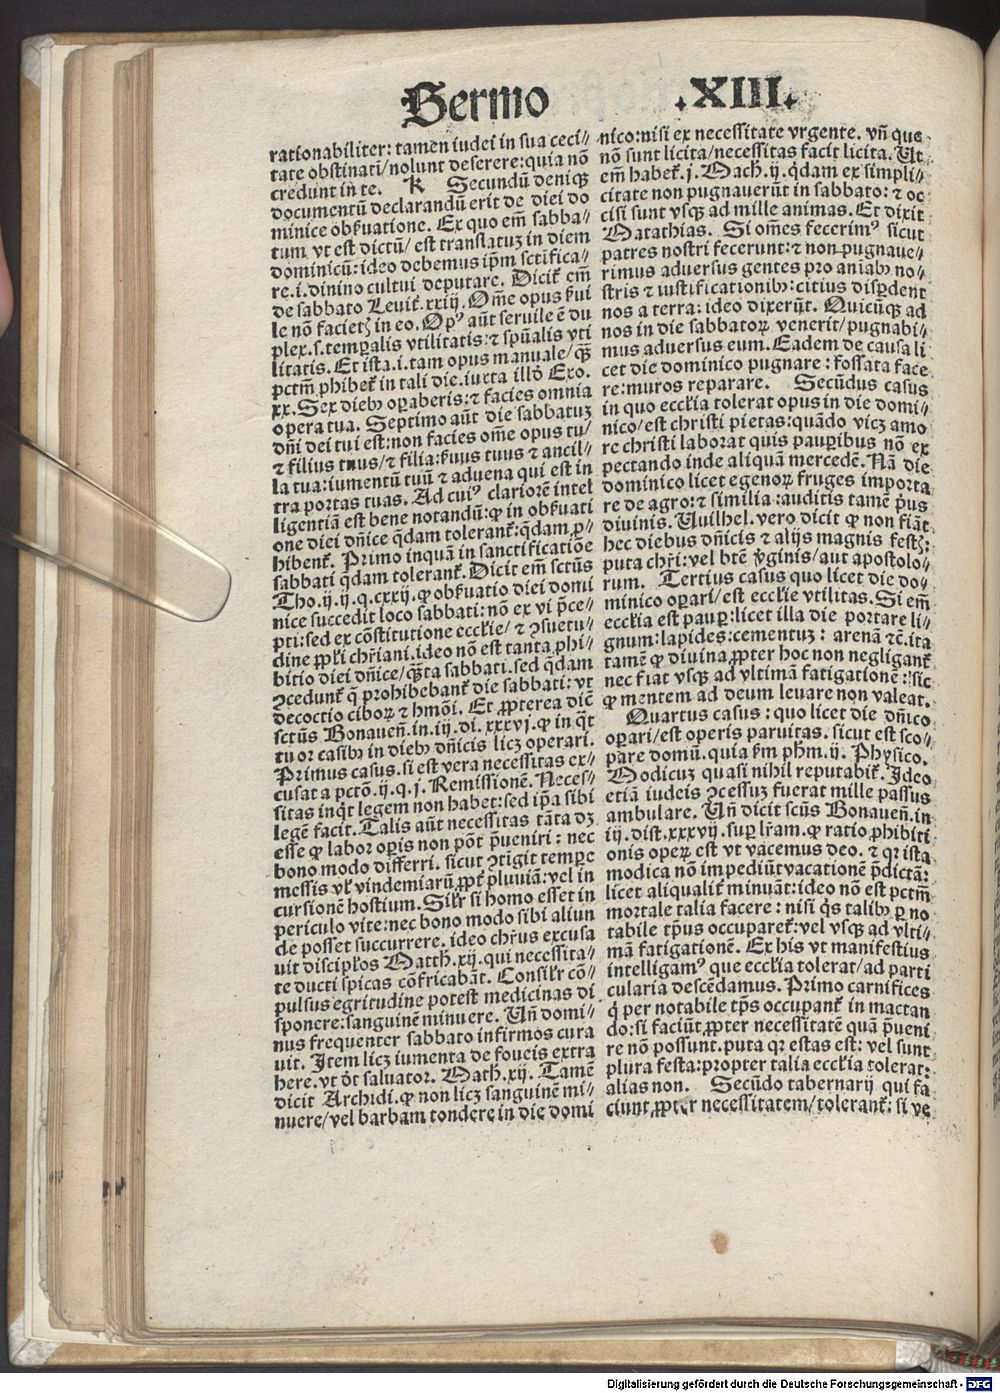 Sermo .XIII.
rationabiliter: tamen iudei in sua ceci⸗
tate obstinati/nolunt deserere: quia nō
credunt in te. K Secundū deniqꝫ
documentū declarandū erit de diei do
minice obẜuatione. Ex quo em̄ sabba⸗
tum vt est dictū/ est translatuꝫ in diem
dominicū: ideo debemus ip̄m sctīfica⸗
re .i. diuino cultui deputare. Dicit̉ em̄
de sabbato Leuit̉. xxiij. Om̄e opus ẜui
le nō facietꝭ in eo. Opꝰ aūt seruile ē du
plex .s. temꝑalis vtilitatis: ⁊ spūalis vti
litatis. Et ista .i. tam opus manuale/ qᷓꝫ
pctm̄ ꝓhibet̉ in tali die. iuxta illḋ Exo.
xx. Sex diebꝰ oꝑaberis: ⁊ facies omnia
opera tua. Septimo aūt die sabbatuꝫ
dn̄i dei tui est: non facies om̄e opus tu/
⁊ filius tuus/ ⁊ filia: ẜuus tuus ⁊ ancil⸗
la tua: iumentū tuū ⁊ aduena qui est in
tra portas tuas. Ad cuiꝰ clariorē intel
ligentiā est bene notandū: ꝙ in obẜuati
one diei dn̄ice qdam tolerant̉: qdam ꝓ⸗
hibent̉. Primo inquā in sanctificatiōe
sabbati qdam tolerant̉. Dicit em̄ sctūs
Tho. ij. ij. q. cxxij. ꝙ obẜuatio diei domi
nice succedit loco sabbati: nō ex vi p̄ce⸗
pti: sed ex cōstitutione eccl̉ie/ ⁊ ꝯsuetu⸗
dine ppl̉i chr̄iani. ideo nō est tanta ꝓhi⸗
bitio diei dn̄ice/ qᷓꝫta sabbati. sed qdam
ꝯcedunt̉ q̄ prohibebant̉ die sabbati: vt
decoctio ciboꝝ ⁊ hmōi. Et ꝓpterea dic̄
sctūs Bonauen̄. in. iij. di. xxxvj. ꝙ in q̄t
tuor casibꝰ in diebꝰ dn̄icis licꝫ operari.
Primus casus. si est vera necessitas ex⸗
cusat a pctō. ij. q. j. Remissionē. Neces⸗
sitas inqt legem non habet: sed ip̄a sibi
legē facit. Talis aūt necessitas tāta dꝫ
esse ꝙ labor oꝑis non pōt p̄ueniri: nec
bono modo differri. sicut ꝯtigit tempe
messis vl̉ vindemiarū ꝓpt̉ pluuiā: vel in
cursionē hostium. Silr̉ si homo esset in
periculo vite: nec bono modo sibi aliun
de posset succurrere. ideo chr̄us excusa
uit discipl̉os Matth. xij. qui necessita⸗
te ducti spicas cōfricabāt. Consilr̉ cō⸗
pulsus egritudine potest medicinas di
sponere: sanguinē minuere. Un̄ domi⸗
nus frequenter sabbato infirmos cura
uit. Item licꝫ iumenta de foueis extra
here. vt dt̄ saluator. Math. xij. Tamē
dicit Archidi. ꝙ non licꝫ sanguinē mi⸗
nuere/ vel barbam tondere in die domi
nico: nisi ex necessitate vrgente. vn̄ que
nō sunt licita/ necessitas facit licita. Ut
em̄ habet̉. j. Mach. ij. qdam ex simpli⸗
citate non pugnauerūt in sabbato: ⁊ oc
cisi sunt vsqꝫ ad mille animas. Et dixit
Matathias. Si om̄es fecerimꝰ sicut
patres nostri fecerunt: ⁊ non pugnaue⸗
rimus aduersus gentes pro aniabꝰ no⸗
stris ⁊ iustificationibꝰ: citius disꝑdent
nos a terra: ideo dixerūt. Quicūqꝫ ad
nos in die sabbatoꝝ venerit/ pugnabi⸗
mus aduersus eum. Eadem de causa li
cet die dominico pugnare: fossata face
re: muros reparare. Secūdus casus
in quo eccl̉ia tolerat opus in die domi⸗
nico/ est christi pietas: quādo vicꝫ amo
re christi laborat quis pauꝑibus nō ex
pectando inde aliquā mercedē. Nā die
dominico licet egenoꝝ fruges importa
re de agro: ⁊ similia: auditis tamē pͥus
diuinis. Uuilhel. vero dicit ꝙ non fiāt
hec diebus dn̄icis ⁊ alijs magnis festꝭ:
puta chr̄i: vel btē ꝟginis/ aut apostolo⸗
rum. Tertius casus quo licet die do⸗
minico oꝑari/ est eccl̉ie vtilitas. Si em̄
eccl̉ia est pauꝑ: licet illa die portare li⸗
gnum: lapides: cementuꝫ: arenā ⁊c̄. ita
tamē ꝙ diuina ꝓpter hoc non negligant̉
nec fiat vsqꝫ ad vltimā fatigationē: sic
ꝙ mentem ad deum leuare non valeat.
Quartus casus: quo licet die dn̄ico
oꝑari/ est operis paruitas. sicut est sco⸗
pare domū. quia ẜm ph̄m. ij. Physico.
Modicuꝫ quasi nihil reputabit̉. Ideo
etiā iudeis ꝯcessuꝫ fuerat mille passus
ambulare. Un̄ dicit scūs Bonauen̄. in
iij. dist. xxxvij. suꝑ lr̄am. ꝙ ratio ꝓhibiti
onis opeꝝ est vt vacemus deo. ⁊ qꝛ ista
modica nō impediūt vacationē p̄dictā:
licet aliqualit̉ minuāt: ideo nō est pctm̄
mortale talia facere: nisi qͥs talibꝰ ꝑ no
tabile tp̄us occuparet̉: vel vsqꝫ ad vlti⸗
mā fatigationē. Ex his vt manifestius
intelligamꝰ que eccl̉ia tolerat/ ad parti
cularia descēdamus. Primo carnifices
qͥ per notabile tp̄s occupant̉ in mactan
do: si faciūt ꝓpter necessitatē quā p̄ueni
re nō possunt. puta qꝛ estas est: vel sunt
plura festa: propter talia eccl̉ia tolerat:
alias non. Secūdo tabernarij qui fa
ciunt ꝓpter necessitatem/ tolerant̉: si ve
Digitalisierung gefördert durch die Deutsche Forschungsgemeinschaft - DFG